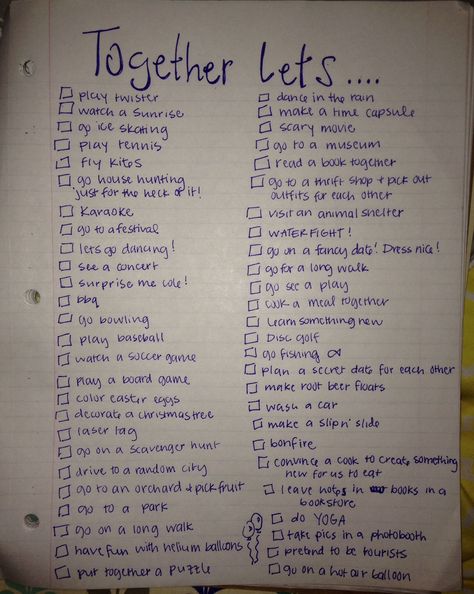 Together Lets....
play twister
watch a sunrise
go ice skating
play tennis
fly kites
go house hunting
just for the heck of it!
Karaoke
go to a festival
lets go dancing!
see a concert
surprise me cole!
bbq
go bowling
play baseball
watch a soccer game
play a board game
color easter eggs
decorate a christmas tree
laser tag
go on a scavenger hunt
drive to a random city
go to an orchard + pick fruit
go to a park
go on a long walk
have fun with helium balloons
put together a puzzle
dance in the rain
make a time capsule
scary movie
go to a museum
read a book together
go to a thrift shop + pick out
outfits for each other
visit an animal shelter
WATERFIGHT!
go on a fancy date! Dress nice!
go for a long walk
go see a play
cook a meal together
learn something new
Disc golf
go fishing
plan a secret date for each other
make root beer floats
wash a car
make a slip n' slide
bonfire
convince a cook to create something
new for us to eat
leave notes in books in a
bookstore
do YOGA
take pics in a photobooth
pretend to be tourists
go on a hot air balloon